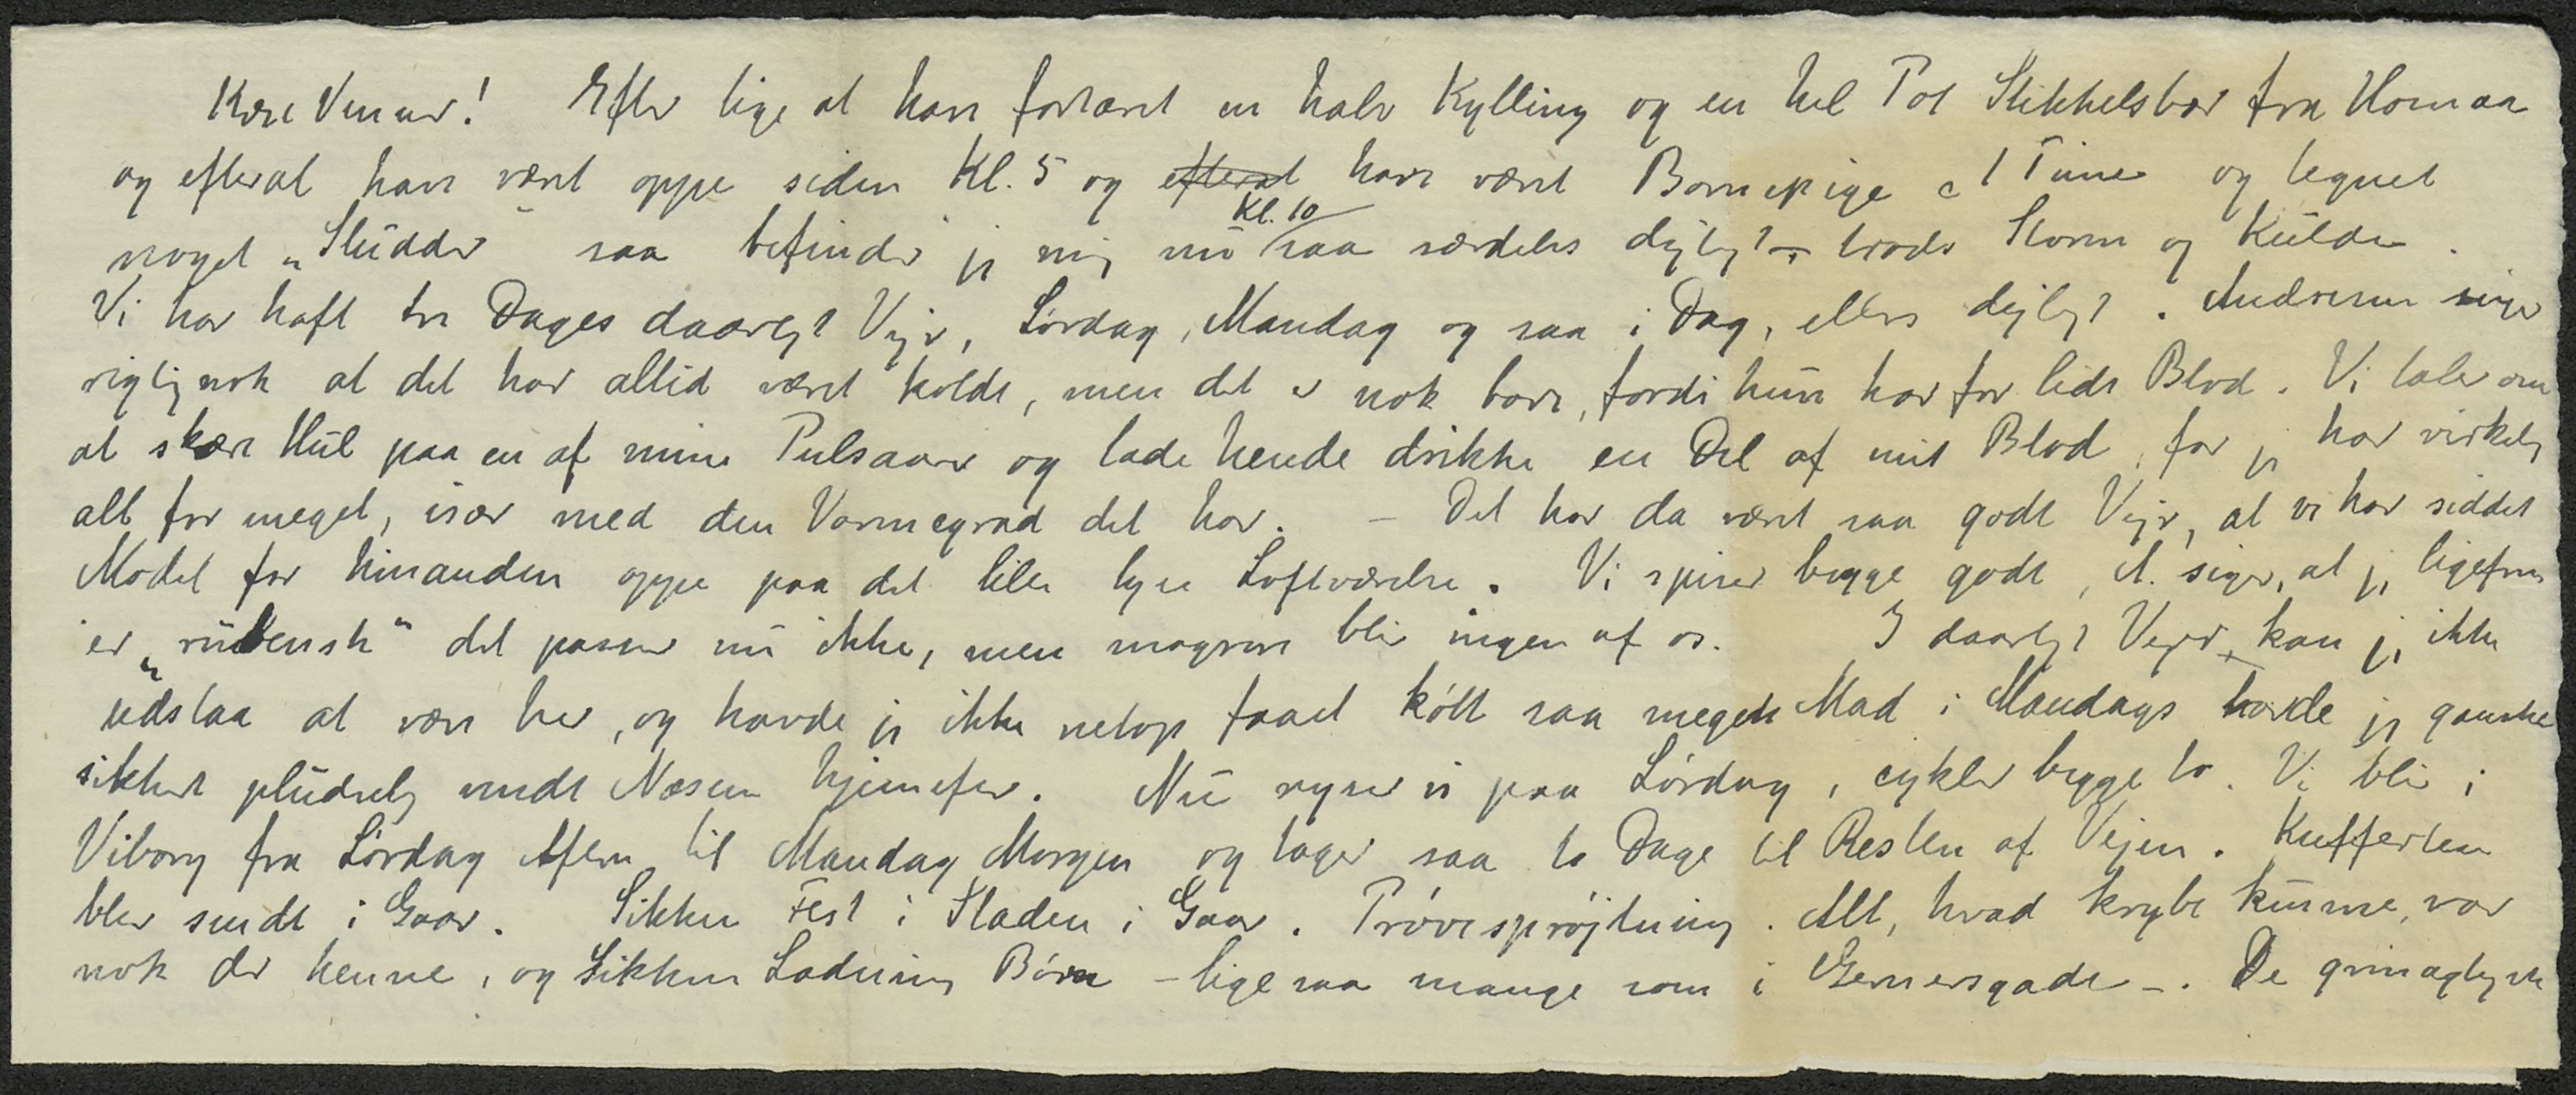 Kære Venner! Efter lige at have fortæret en halv Kylling og en hel Pot Stikkelsbær fra Hornaa
og efterat have været oppe siden Kl. 5 og efterat have været Barnepige c 1 Time og tegnet
noget „Sludder" saa befinder jeg mig nu Kl. 10 saa særdeles dejligt trods Storm og Kulde.
Vi har haft tre Dages daarligt Vejr, Lørdag, Mandag og saa i Dag, ellers dejligt. Andresen siger
rigtignok at det har altid været koldt, men det er nok bare, fordi hun har for lidt Blod. Vi taler om
at skære Hul paa en af mine Pulsaarer og lade hende drikke en Del af mit Blod, for jeg har virkelig
alt for meget, især med den Varmegrad det har. – Det har da været saa godt Vejr, at vi har siddet
Model for hinanden oppe paa det lille lyse Loftværelse. Vi spiser begge godt, A. siger, at jeg ligefrem
er „rubensk" det passer nu ikke, men magrere blir ingen af os. I daarligt Vejr kan jeg ikke
udstaa at være her, og havde jeg ikke netop faaet købt saa meget Mad i Mandags havde jeg ganske
sikkert pludselig vendt Næsen hjemefter. Nu ryser vi paa Lørdag, cykler begge to. Vi blir i
Viborg fra Lørdag Aften til Mandag Morgen og tager saa to Dage til Resten af Vejen. Kufferten
blev sendt i Gaar. Sikken Fest i Staden i Gaar. Prøvesprøjtning. Alt, hvad krybe kunne, var
nok der henne, og Sikken Ladning Børn – ligesaa mange som i Gernersgade –. De grinagtigste